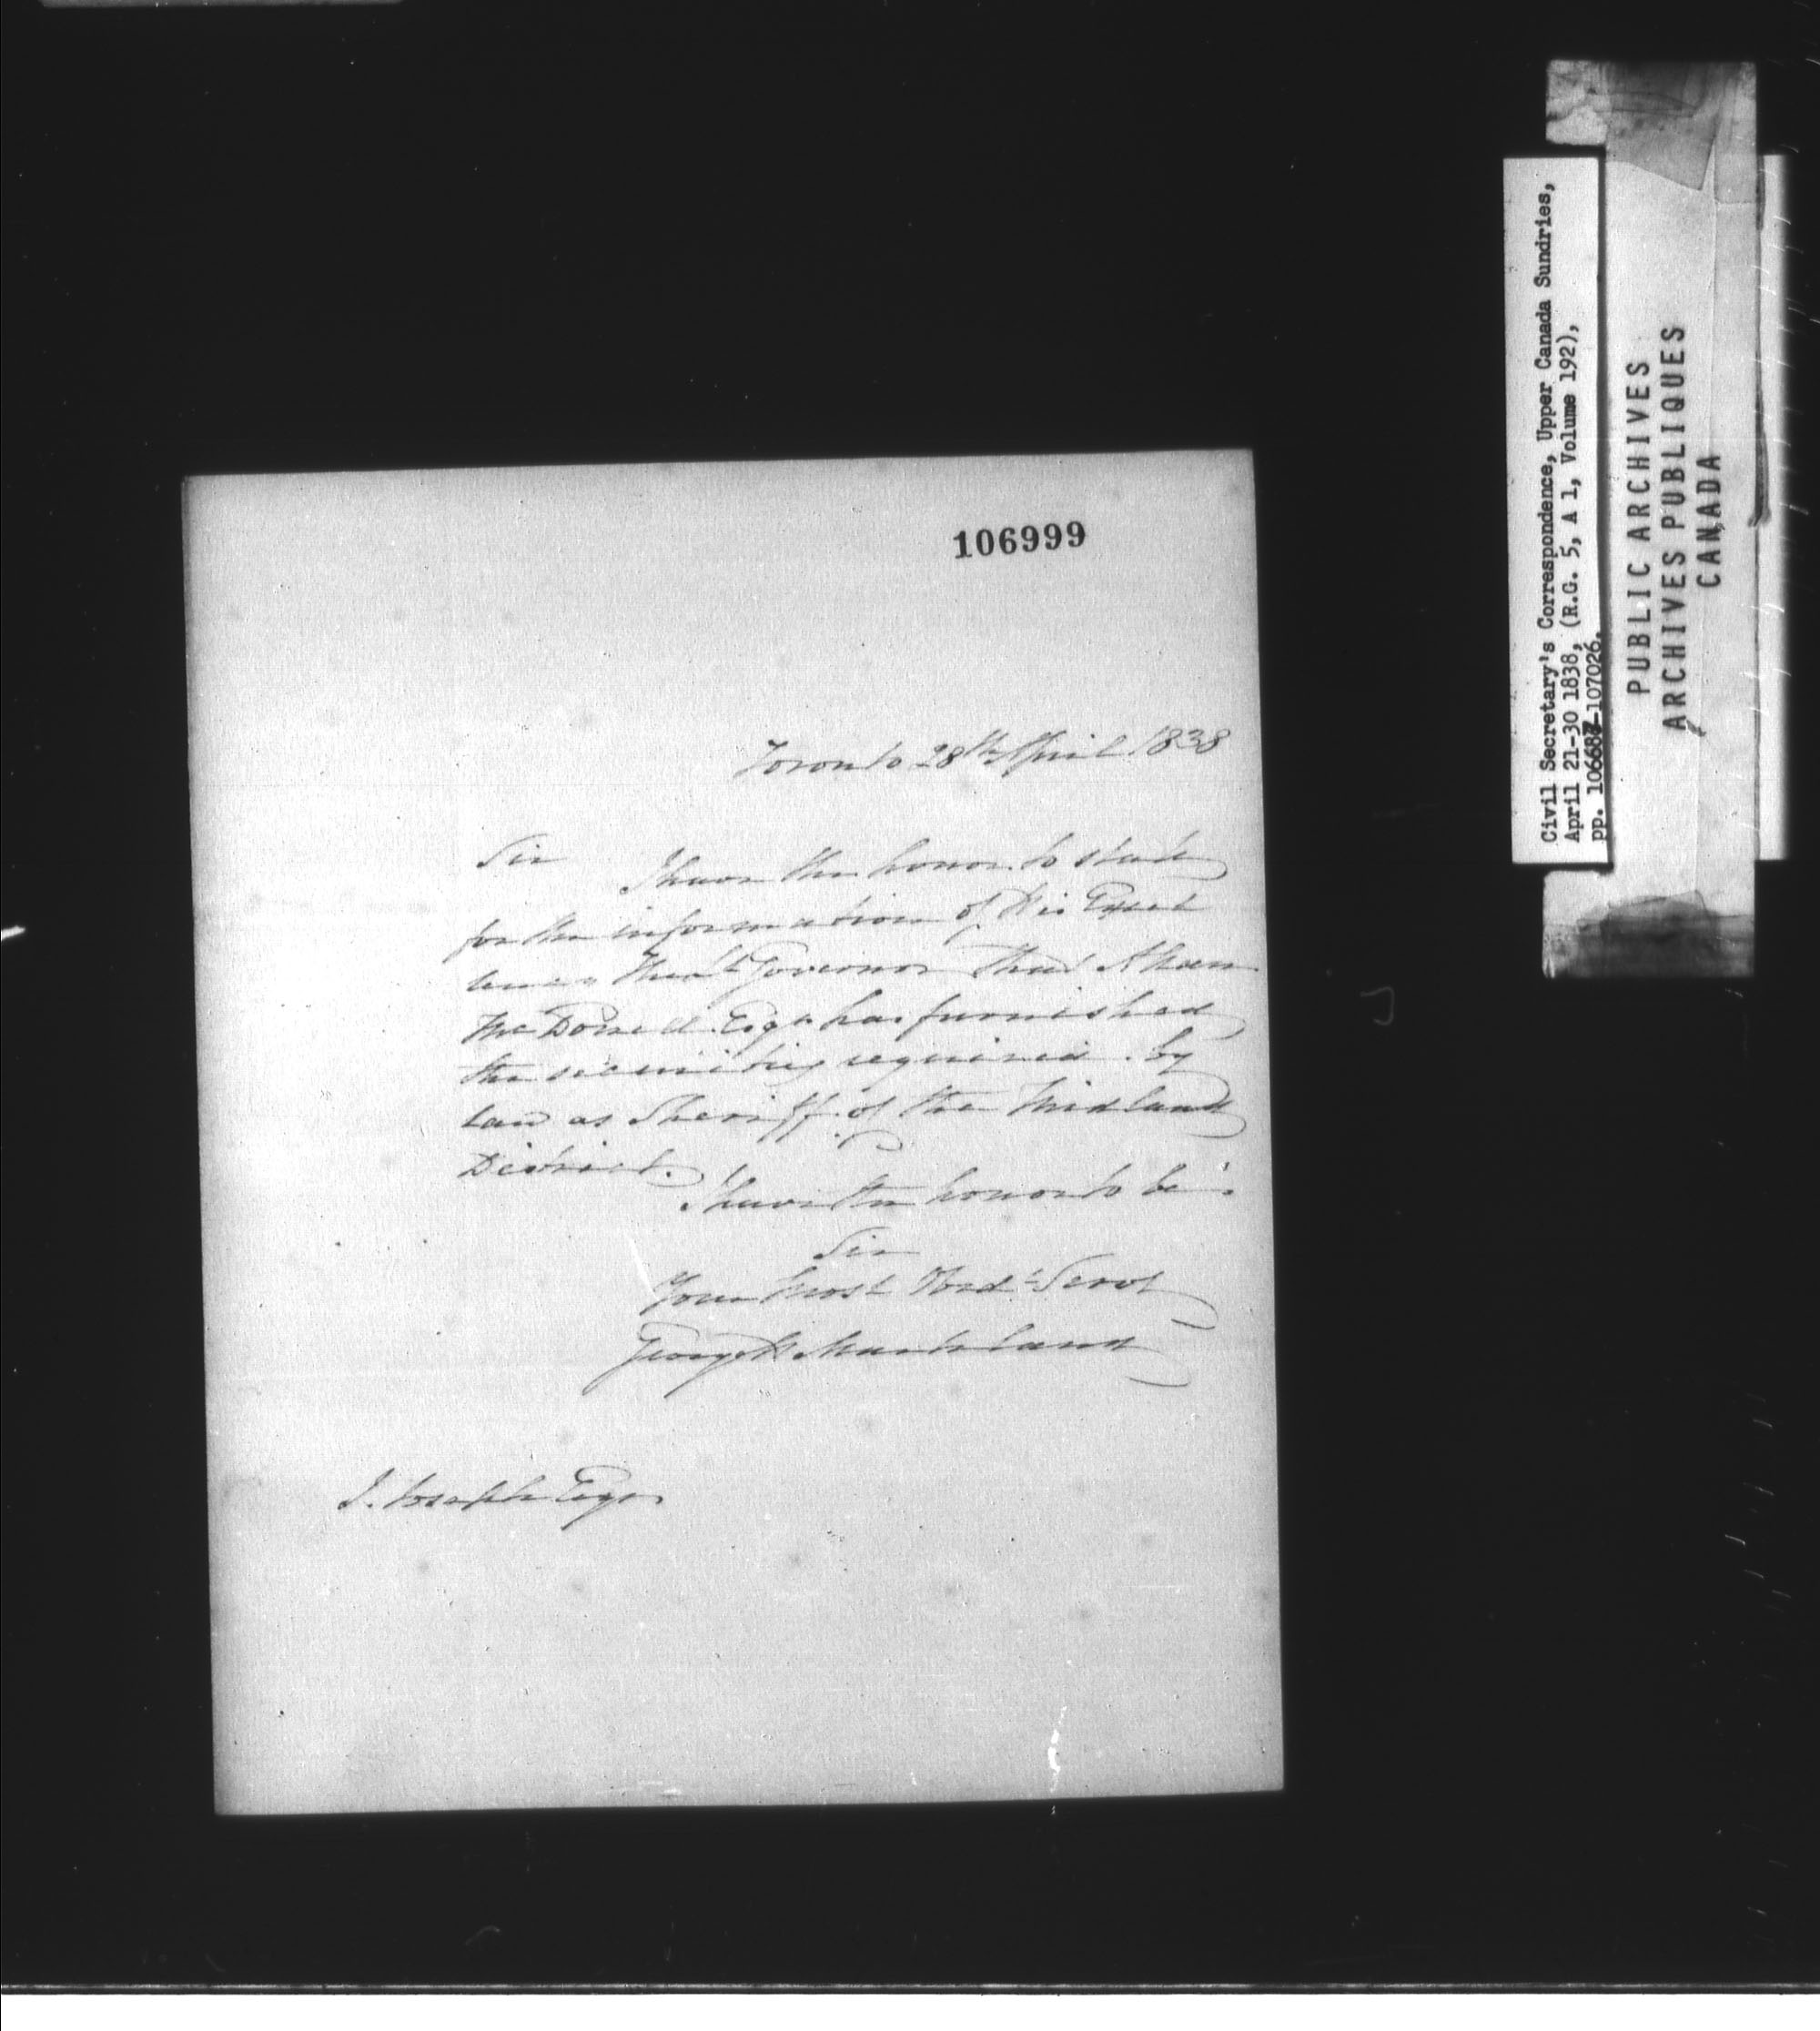 106999
Toronto 28th April 1838
Sir I have the honor to state
for the information of His Excel
lency The Lt Governor that Allan
McDonell Esqr has furnished
the securities required by
law as Sheriff of the Midland
District.
I have the honor to be
Sir
Your Most Obedt Servt
George H Markland
J. Joseph Esqr
Civil Secretary's Correspondence, Upper Canada Sundries,
April 21-30 1838, (R.G. 5, A 1, Volume 192),
pp. 106687-107026.
PUBLIC ARCHIVES
ARCHIVES PUBLIQUES
CANADA